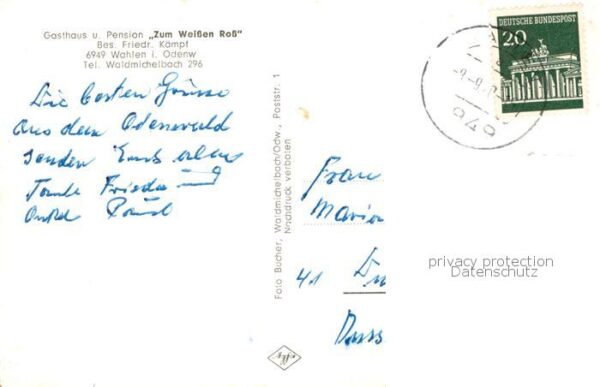 Gasthaus u. Pension „Zum Weißen Roß"
Bes. Friedr. Kämpf
6949 Wahlen i. Odenw
Tel. Waldmichelbach 296
Die besten Grüsse
aus dem Odenwald
senden Euch allen
Tante Frieda
Onkel Paul
Foto Bucher, Waldmichelbach/Odw., Poststr. 1
Nachdruck verboten
DEUTSCHE BUNDESPOST
20
Frau
Maria
41 Du
privacy protection
Datenschutz